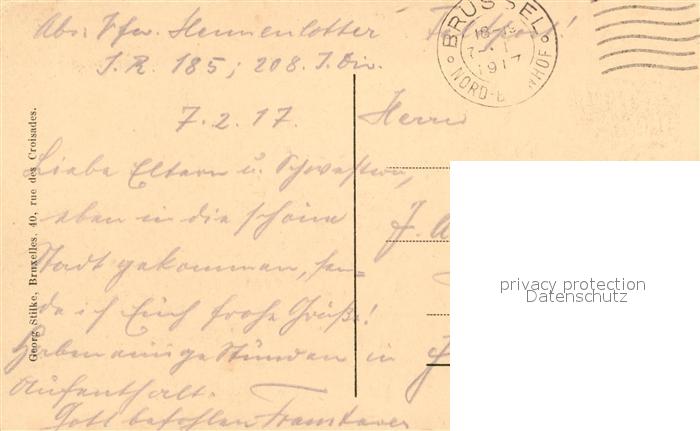 Abs: Vfw. Hemmenlotter Feldpost!
I. R. 185; 208. I. Div.
BRÜSSEL
7.
1917
NORD-B NHOF
7. 2. 17.
Herrn
Liebe Eltern u. Schwestern,
eben in die schöne
Stadt gekommen, sen-
de ich Euch frohe Grüße!
Haben einige Stunden
Aufenthalt.
Gott befohlen
J. A
Georg Stilke, Bruxelles. 40, rue des Croisades.
privacy protection
Datenschutz